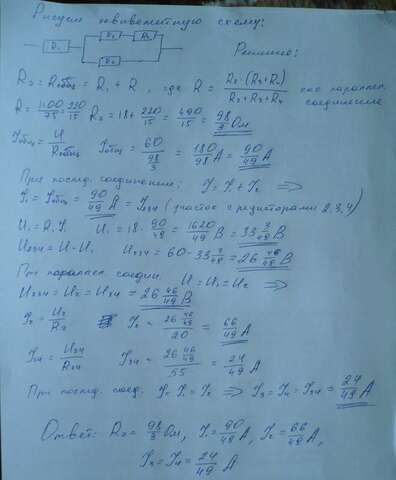 Рисуем эквивалентную схему:
R₁ R₃ R₄
R₂
Решение:
Rэ = Rобщ = R₁ + R , где R = R₂·(R₃+R₄) / R₂+R₃+R₄ это параллел. соединение
R = 1100/75 = 220/15 Rэ = 18 + 220/15 = 490/15 = 98/3 Ом
Iобщ = U/Rобщ Iобщ = 60 / 98/3 = 180/98 A = 90/49 A
При послед. соединение: I = I₁ = I₂ =>
I₁ = Iобщ = 90/49 A = I₂₃₄ (участок с резисторами 2,3,4)
U₁ = R₁ I₁ U₁ = 18 · 90/49 = 1620/49 В = 33 3/49 В
U₂₃₄ = U - U₁ U₂₃₄ = 60 - 33 3/49 = 26 46/49 В
При параллел. соедин. U = U₁ = U₂ =>
U₂₃₄ = U₂ = U₃₄ = 26 46/49 В
I₂ = U₂/R₂ I₂ = 26 46/49 / 20 = 66/49 A
I₃₄ = U₃₄/R₃₄ I₃₄ = 26 46/49 / 55 = 24/49 A
При послед. соед. I = I₁ = I₂ => I₃ = I₄ = I₃₄ = 24/49 A
Ответ: Rэ = 98/3 Ом, I₁ = 90/49 A, I₂ = 66/49 A,
I₃ = I₄ = 24/49 A